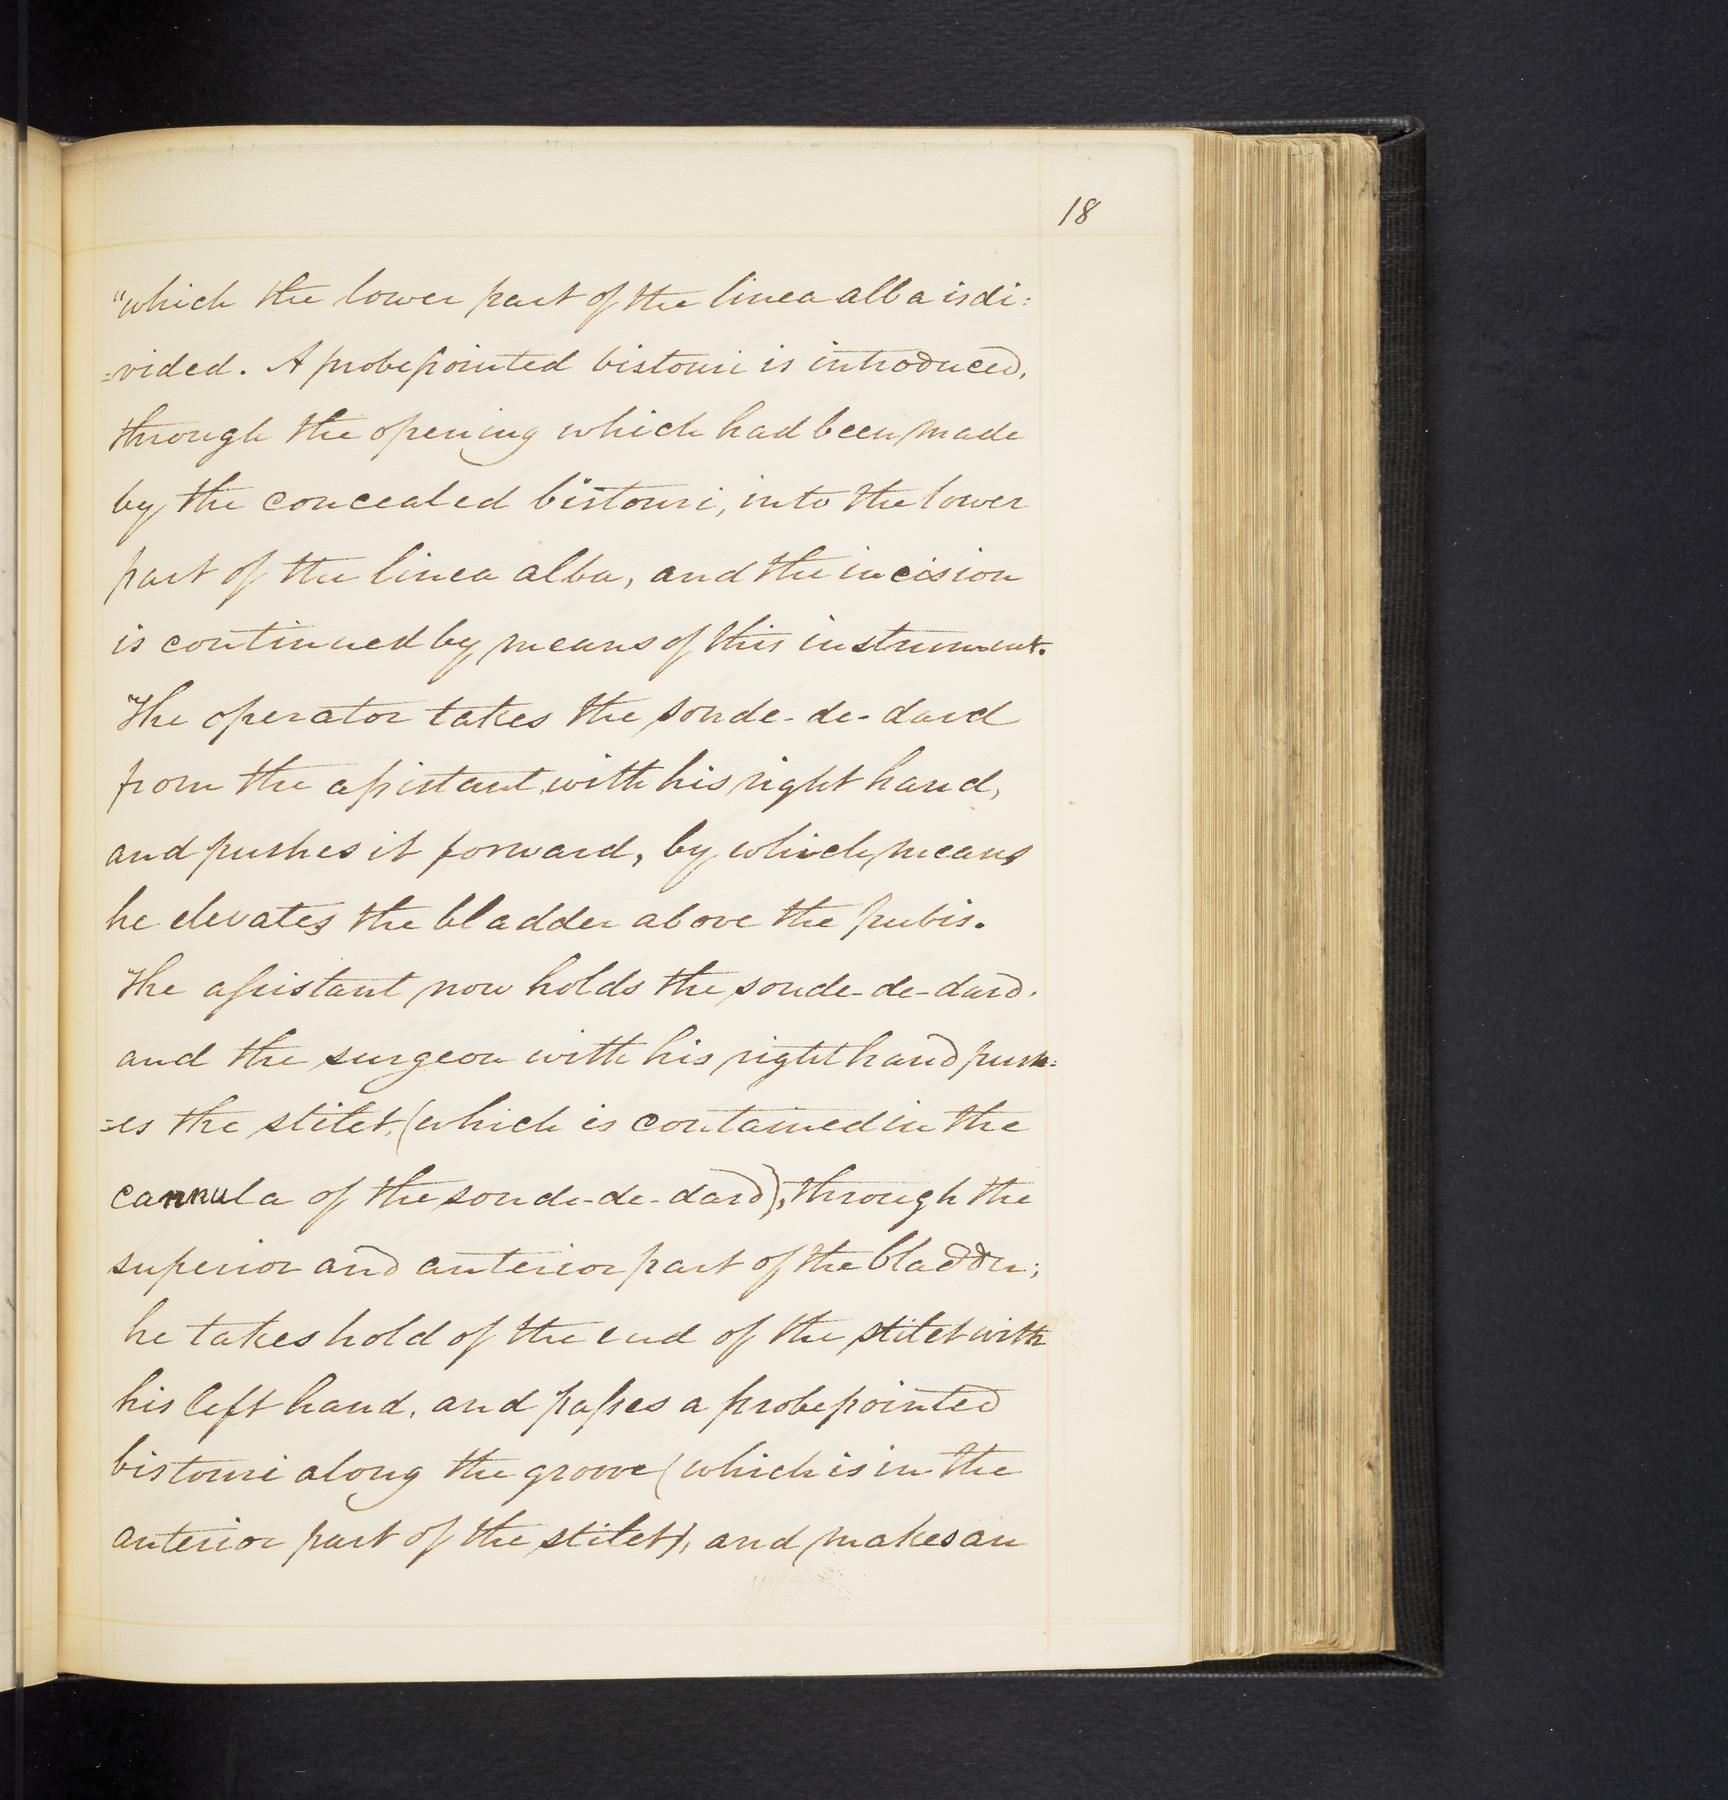 18
"which the lower part of the linea alba is di:
=vided. A probe pointed bistouri is introduced,
through the opening which had been made
by the concealed bistouri, into the lower
part of the linea alba, and the incision
is continued by means of this instrument.
The operator takes the sonde-de-dard
from the assistant with his right hand,
and pushes it forward, by which means
he elevates the bladder above the pubis.
The assistant now holds the sonde-de-dard.
and the surgeon with his right hand push:
=es the stilet, (which is contained in the
cannula of the sonde-de-dard), through the
superior and anterior part of the bladder;
he takes hold of the end of the stilet with
his left hand, and passes a probe pointed
bistouri along the groove (which is in the
anterior part of the stilet), and makes an